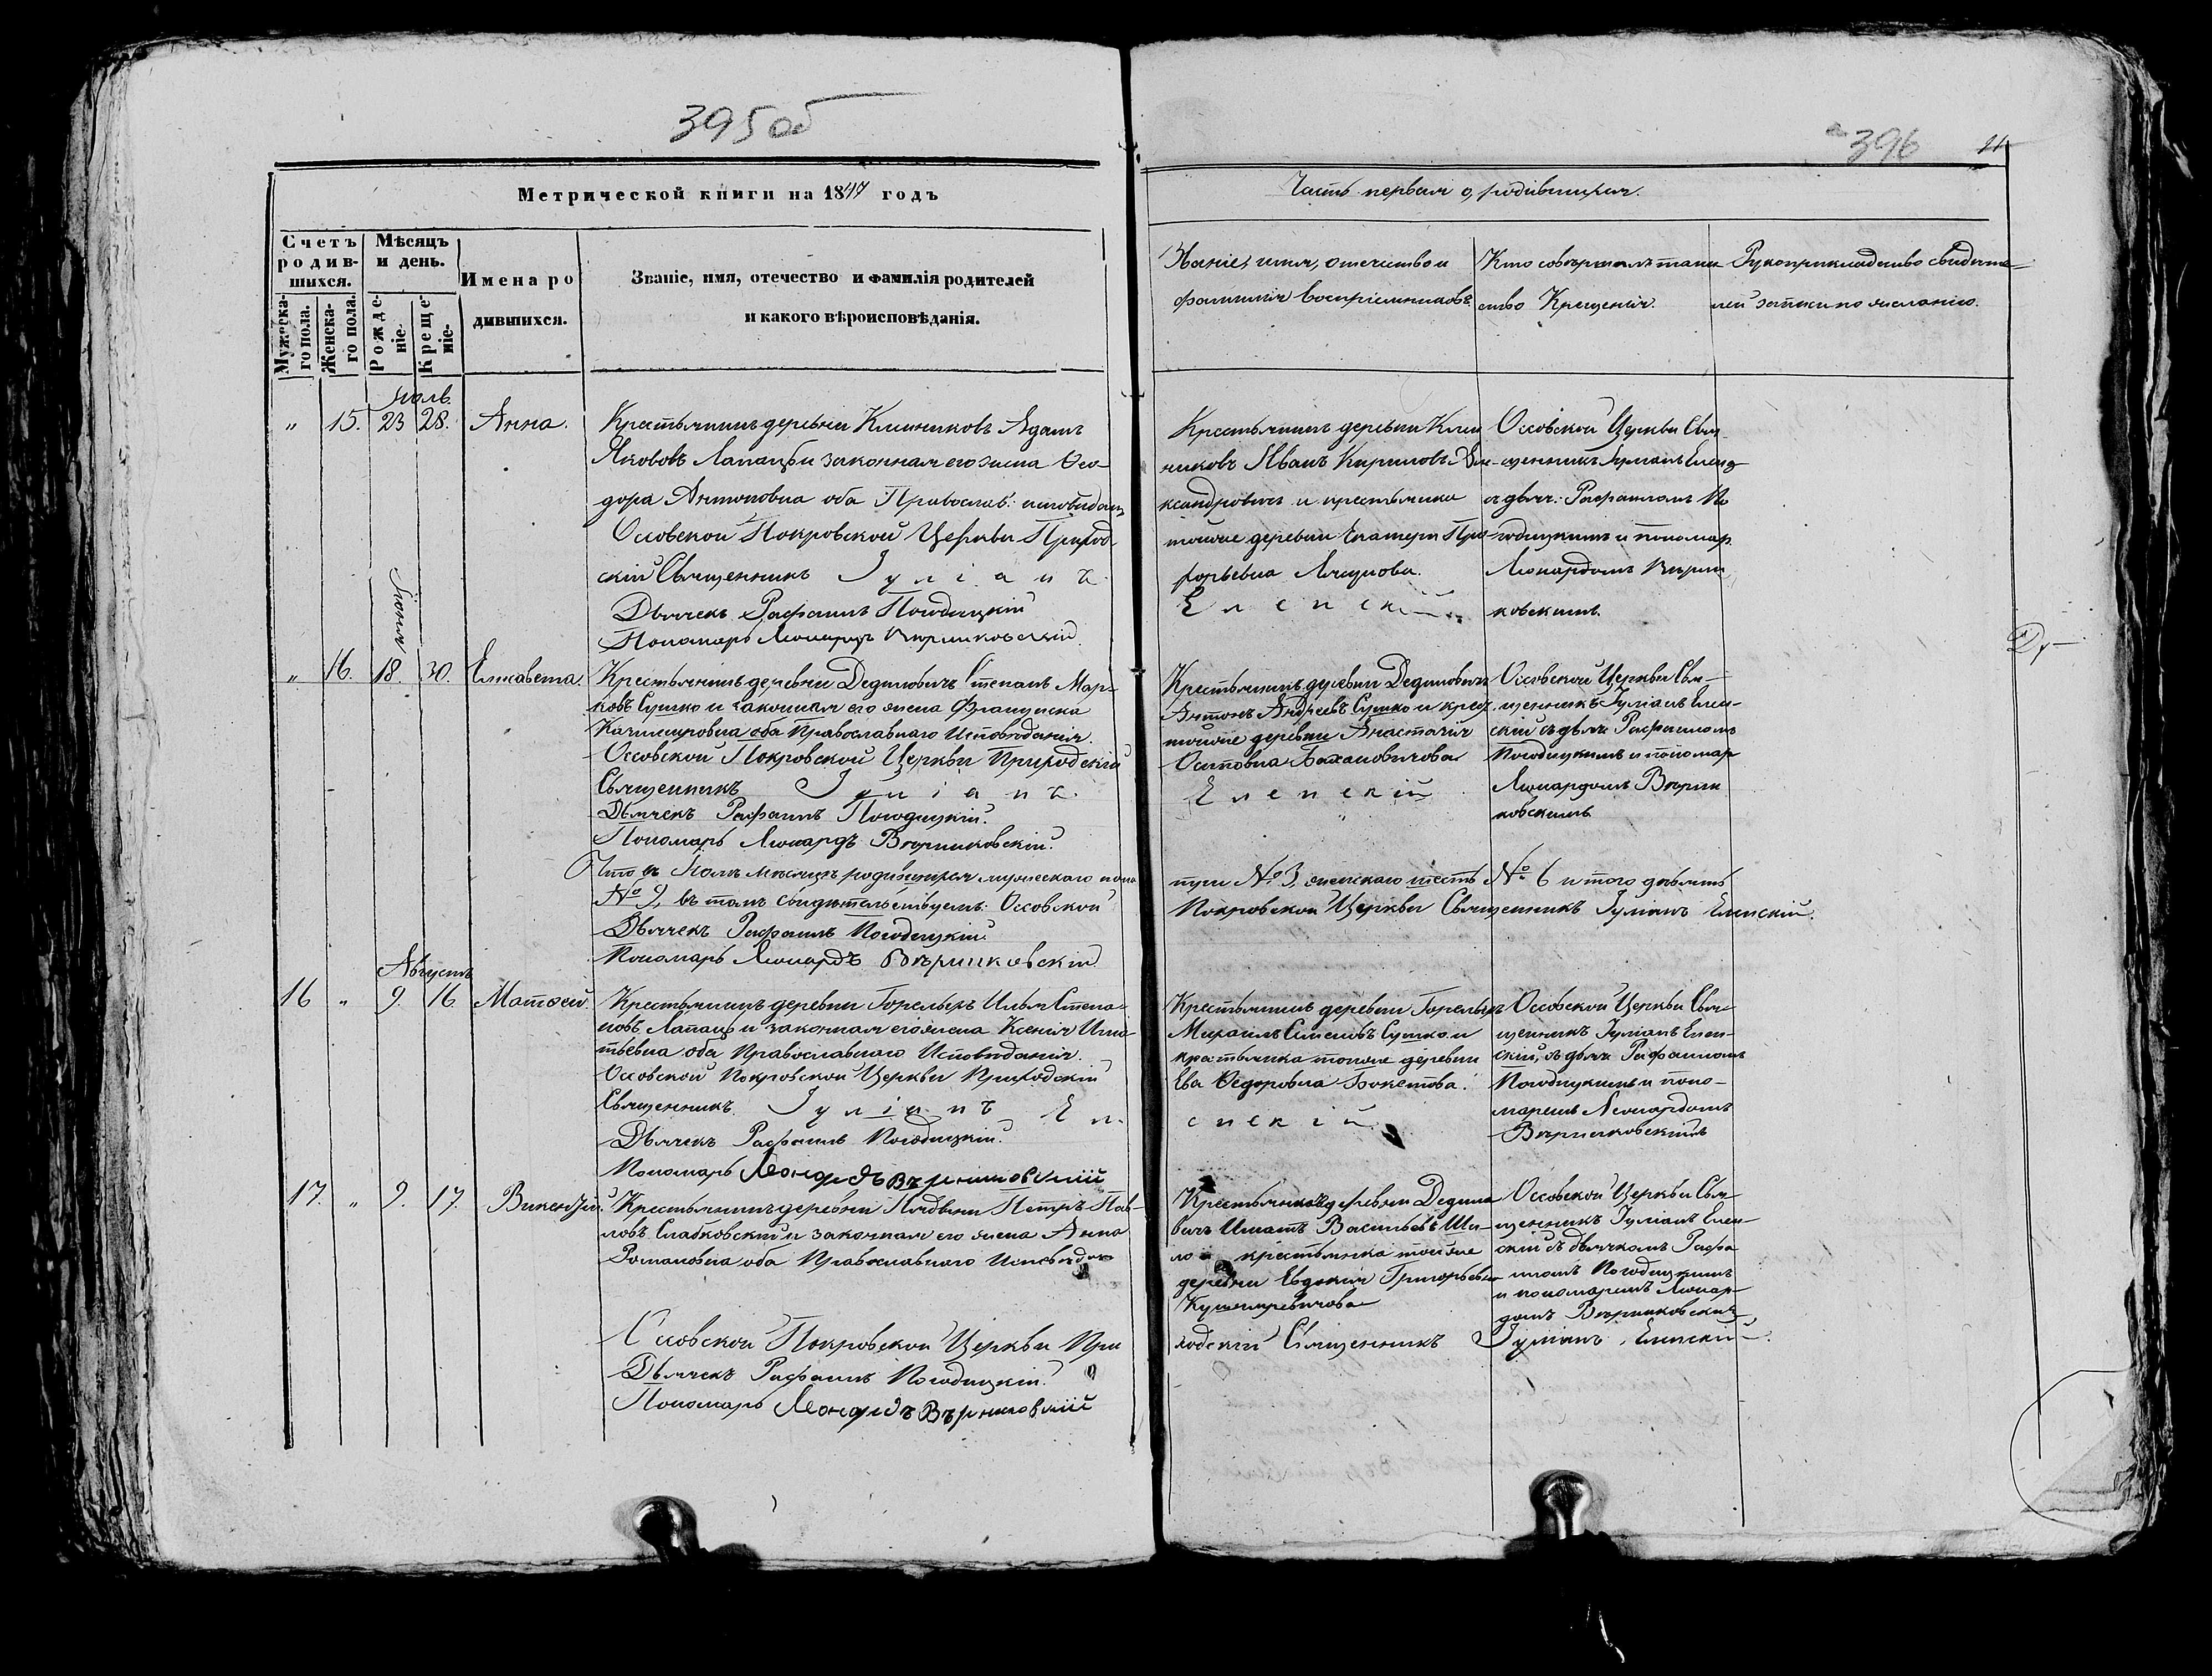 395об
Метрической книги на 1847 годъ
Счетъ родив-шихся.
Мѣсяцъ и день.
Имена родившихся.
Званіе, имя, отечество и фамилія родителей
и какого вѣроисповѣданія.
Мужеска-го пола.
Женска-го пола.
Рожде-ніе.
Креще-ніе.
Іюль
" 15. 23 28. Анна.
Крестьянинъ деревни Клинниковъ Адамъ
Якововъ Лапацъ и законная его жена Ѳео-
дора Антоновна оба Православ: исповѣдан:
Оссовской Покровской Церкви Приход-
скій Священникъ Іуліанъ
Дьячекъ Рафаилъ Погодицкій
Пономарь Леонардъ Вѣриковскій.
Іюня
" 16. 18. 30. Елисавета.
Крестьянинъ деревни Дединовичъ Степанъ Мар-
ковъ Сушко и законная его жена Француска
Казимировна оба Православнаго Исповѣданія.
Оссовской Покровской Церкви Приходскій
Священникъ Іуліанъ.
Дьячекъ Рафаилъ Погодицкій.
Пономарь Леонардъ Вѣриковскій.
Что въ Іюлѣ мѣсяцѣ родившихся мужескаго пола
№ 9, въ томъ свидѣтельствуемъ: Оссовской
Дьячекъ Рафаилъ Погодицкій.
Пономарь Леонардъ Вѣриковскій
Августъ
16 " 9. 16. Матѳей.
Крестьянинъ деревни Горелыхъ Илья Степа-
новъ Лапацъ и законная его жена Ксенія Игна-
тьевна оба Православнаго Исповѣданія.
Оссовской Покровской Церкви Приходскій
Священникъ. Іуліанъ Ел-
Дьячекъ Рафаилъ Погодицкій.
Пономарь Леонардъ
17. " 9. 17. Викентій.
Крестьянинъ деревни Петръ Пав-
ловъ Слабковскій и законная его жена Анна
Романовна оба Православнаго Исповѣдан
Оссовской Покровской Церкви При
Дьячекъ Рафаилъ Погодицкій.
Пономарь Леонардъ
396 11
Часть первая о родившихся.
Званіе, имя, отечество и
фамилія воспріемниковъ
Кто совершалъ таин
ство Крещенія.
Рукоприкладство свидѣте-
лей записки по желанію.
Крестьянинъ деревни Клин
никовъ Иванъ Кириловъ Але-
ксандровичъ и крестьянка
тойже деревни Екатерин
Ляцукова.
Еленскій.
Оссовской Церкви Свя-
щенникъ Іуліанъ Еленс
съ дьяч: Рафаиломъ По
годицкимъ и пономар.
Леонардомъ Вѣри
ковскимъ.
Крестьянинъ деревни Дединовичъ
Антонъ Андреевъ Сушко и крест.
тойже деревни Анастасія
Осиповна
Еленскій.
Оссовской Церкви Свя-
щенникъ Іуліанъ Елен-
скій съ дьяч: Рафаиломъ
Погодицкимъ и пономар
Леонардомъ Вѣри
ковскимъ
Ду-
№ 9, женскаго шесть № 6 итого девять
Покровской Церкви Священникъ Іуліанъ Еленскій.
Крестьянинъ деревни Горелыхъ
Михаилъ Симеоновъ Сушко и
крестьянка тойже деревни
Ева Ѳедоровна
енскій
Оссовской Церкви Свя-
щенникъ Іуліанъ Елен-
скій, съ дьяч: Рафаиломъ
Погодицкимъ и поно-
маремъ Леонардомъ
Вѣриковскимъ
Крестьянинъ деревни Дедино
вичъ Игнатъ Васильевъ Ши-
ло и крестьянка тойже
деревни Евдокія Григорьевна
Оссовской Церкви Свя-
щенникъ Іуліанъ Елен-
скій съ дьячкомъ Рафа
иломъ Погодицкимъ
и пономаремъ Леонар-
домъ Вѣриковским
ходскій Священникъ Іуліанъ Еленскій.